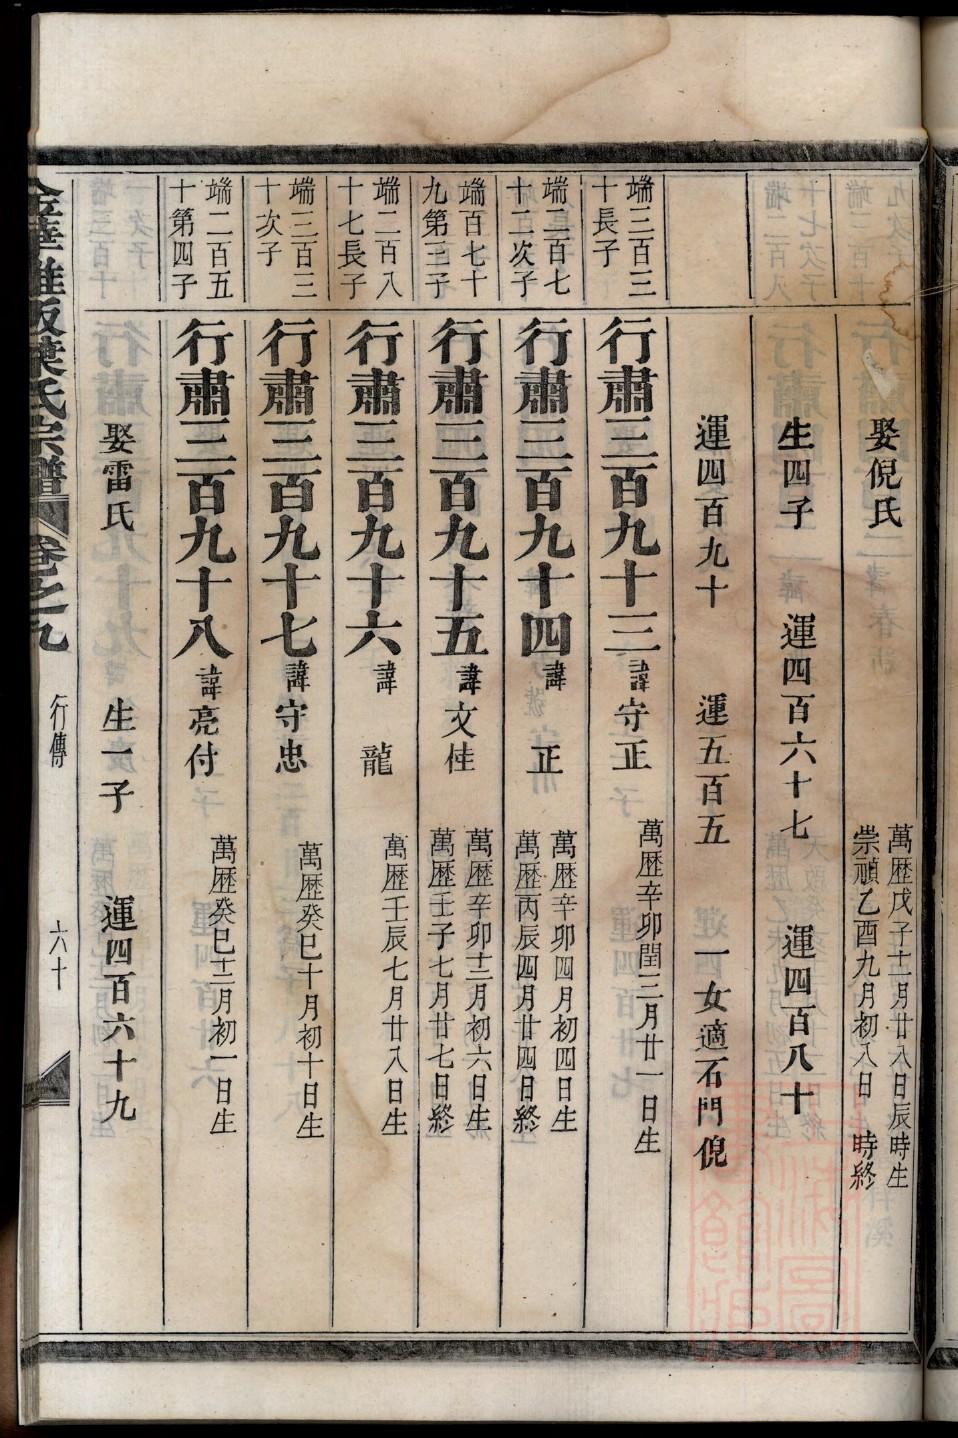 娶倪氏
萬歴戊子十二月廿八日辰時生
崇禎乙酉九月初八日 時終
生四子 運四百六十七 運四百八十
運四百九十 運五百五 一女適石門倪
端三百三十長子
行肅三百九十三 諱守正 萬歴辛卯閏三月廿一日生
端三百七十二次子
行肅三百九十四 諱 正
萬歴辛卯四月初四日生
萬歴丙辰四月廿四日終
端百七十九第三子
行肅三百九十五 諱文佳
萬歴辛卯十二月初六日生
萬歴壬子七月廿七日終
端二百八十七長子
行肅三百九十六 諱 龍 萬歴壬辰七月廿八日生
端三百三十次子
行肅三百九十七 諱守忠 萬歴癸巳十月初十日生
端二百五十第四子
行肅三百九十八 諱亮付 萬歴癸巳十二月初一日生
娶雷氏 生一子 運四百六十九
葉氏宗譜 卷之九 行傳 六十